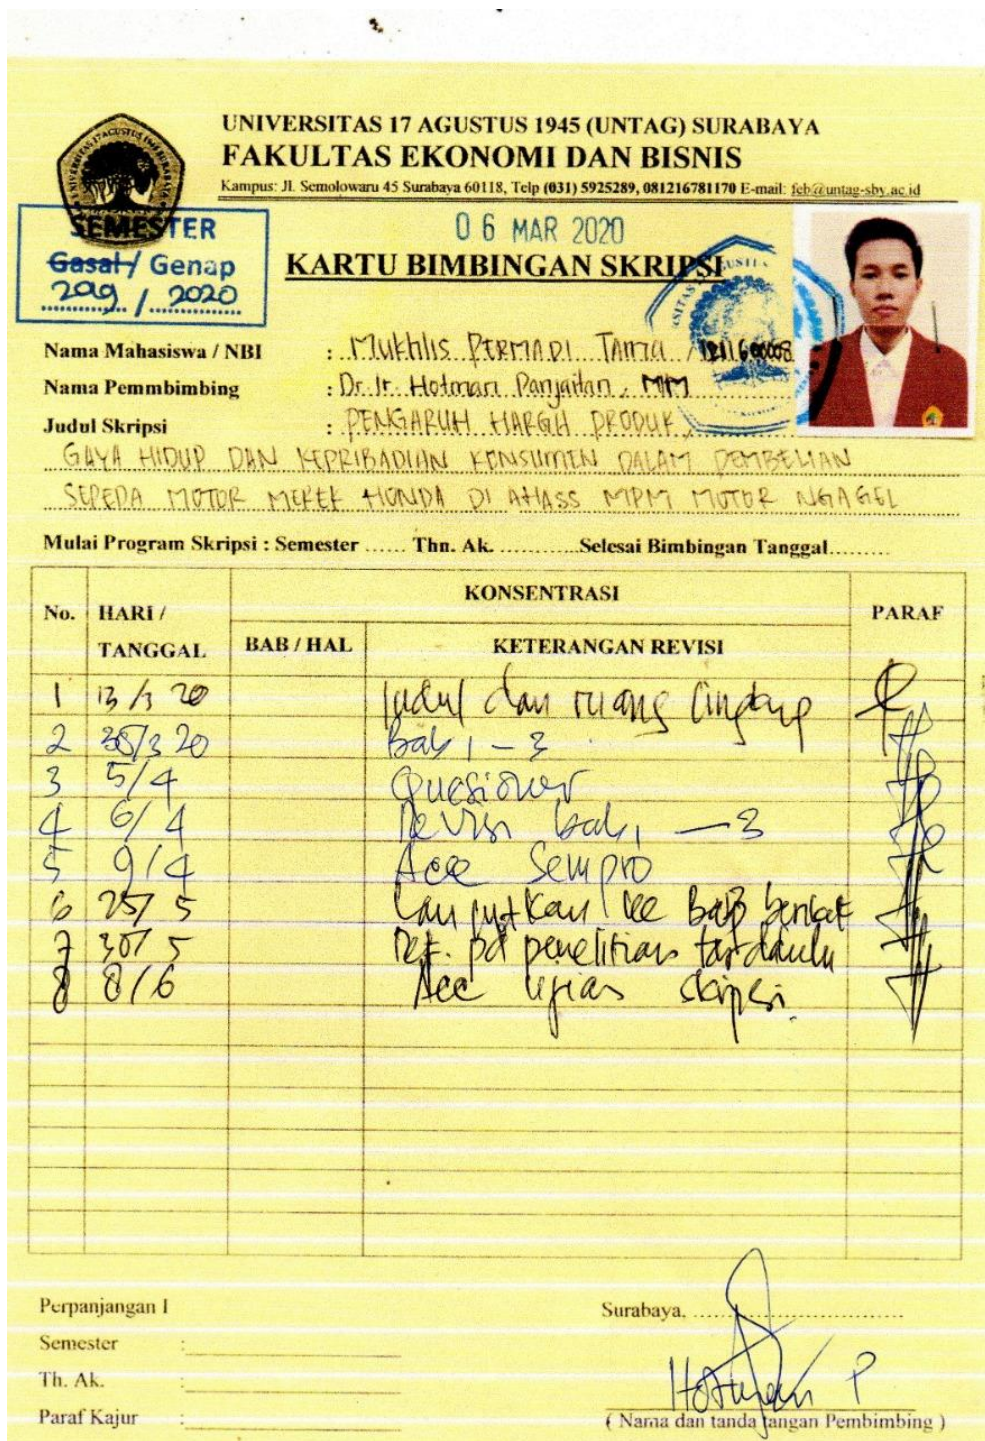 UNIVERSITAS 17 AGUSTUS 1945 (UNTAG) SURABAYA
FAKULTAS EKONOMI DAN BISNIS
Kampus: Jl. Semolowaru 45 Surabaya 60118, Telp (031) 5925289, 081216781170 E-mail: feb@untag-sby.ac.id
SEMESTER
Gasal / Genap
2019 / 2020
06 MAR 2020
KARTU BIMBINGAN SKRIPSI
Nama Mahasiswa / NBI : Mukhlis PERMADI TAMA /
Nama Pemmbimbing : Dr. Ir. Hotman Panjaitan, MM
Judul Skripsi : PENGARUH HARGA PRODUK,
GAYA HIDUP DAN KEPRIBADIAN KONSUMEN DALAM PEMBELIAN
SEPEDA MOTOR MEREK HONDA DI AHASS MPM MOTOR NGAGEL
Mulai Program Skripsi : Semester ...... Thn. Ak. ............Selesai Bimbingan Tanggal.........
No. HARI / TANGGAL KONSENTRASI PARAF
BAB / HAL KETERANGAN REVISI
1 13/3 20 Judul dan ruang lingkup
2 /3 20 Bab 1 - 3
3 5/4 Quesioner
4 6/4 Revisi bab 1 - 3
5 9/4 Acc Sempro
6 25/5 Lanjutkan ke Bab
7 30/5 pd penelitian terdahulu
8 8/6 Acc Ujian skripsi.
Perpanjangan I
Semester :
Th. Ak. :
Paraf Kajur :
Surabaya, ........................................
Hotman P
( Nama dan tanda tangan Pembimbing )